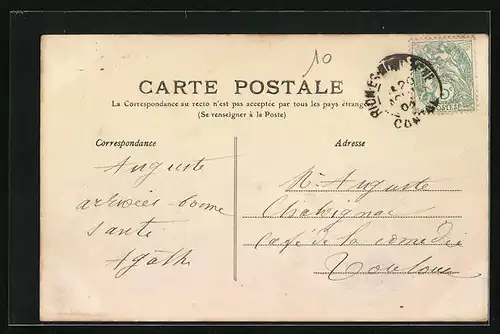 10
CARTE POSTALE
La Correspondance au recto n'est pas acceptée par tous les pays étrangers
(Se renseigner à la Poste)
Correspondance
Auguste
arrivées bonne
santé
Agathe
Adresse
Mr Auguste
Chalvignac
Café de la comedie
Toulouse